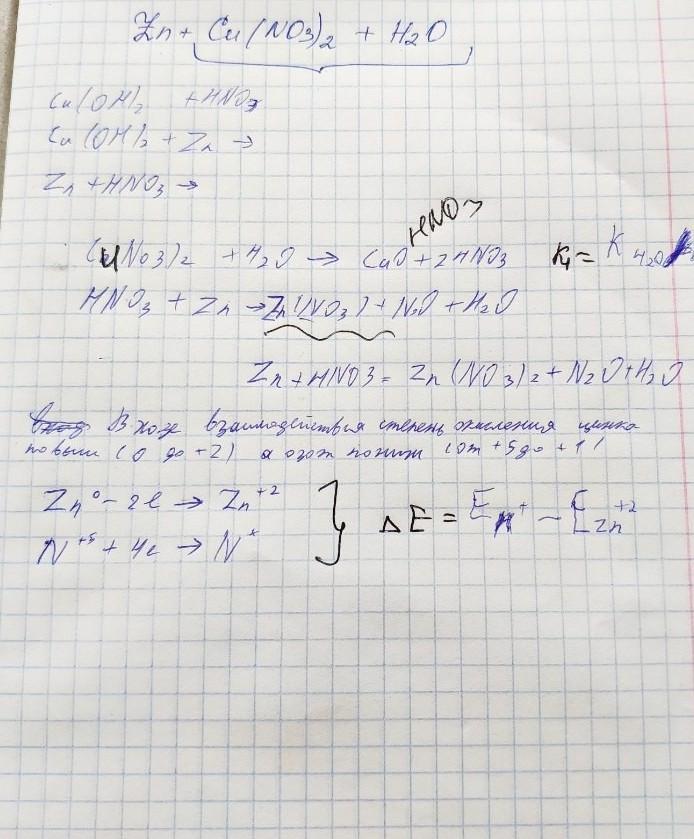 Zn + Cu(NO3)2 + H2O
Cu(OH)2 + HNO3
Cu(OH)2 + Zn →
Zn + HNO3 →
HNO3
(CuNo3)2 + H2O → CuO + 2HNO3 K4 = K H2O
HNO3 + Zn → Zn(NO3) + N2O + H2O
Zn + HNO3 = Zn(NO3)2 + N2O + H2O
В ходе взаимодействия степень окисления цинка
повыш (0 до +2) а азот пониж (от +5 до +1)
Zn⁰ - 2e → Zn⁺² } ΔE = E - E Zn⁺²
N⁺⁵ + 4e → N⁺